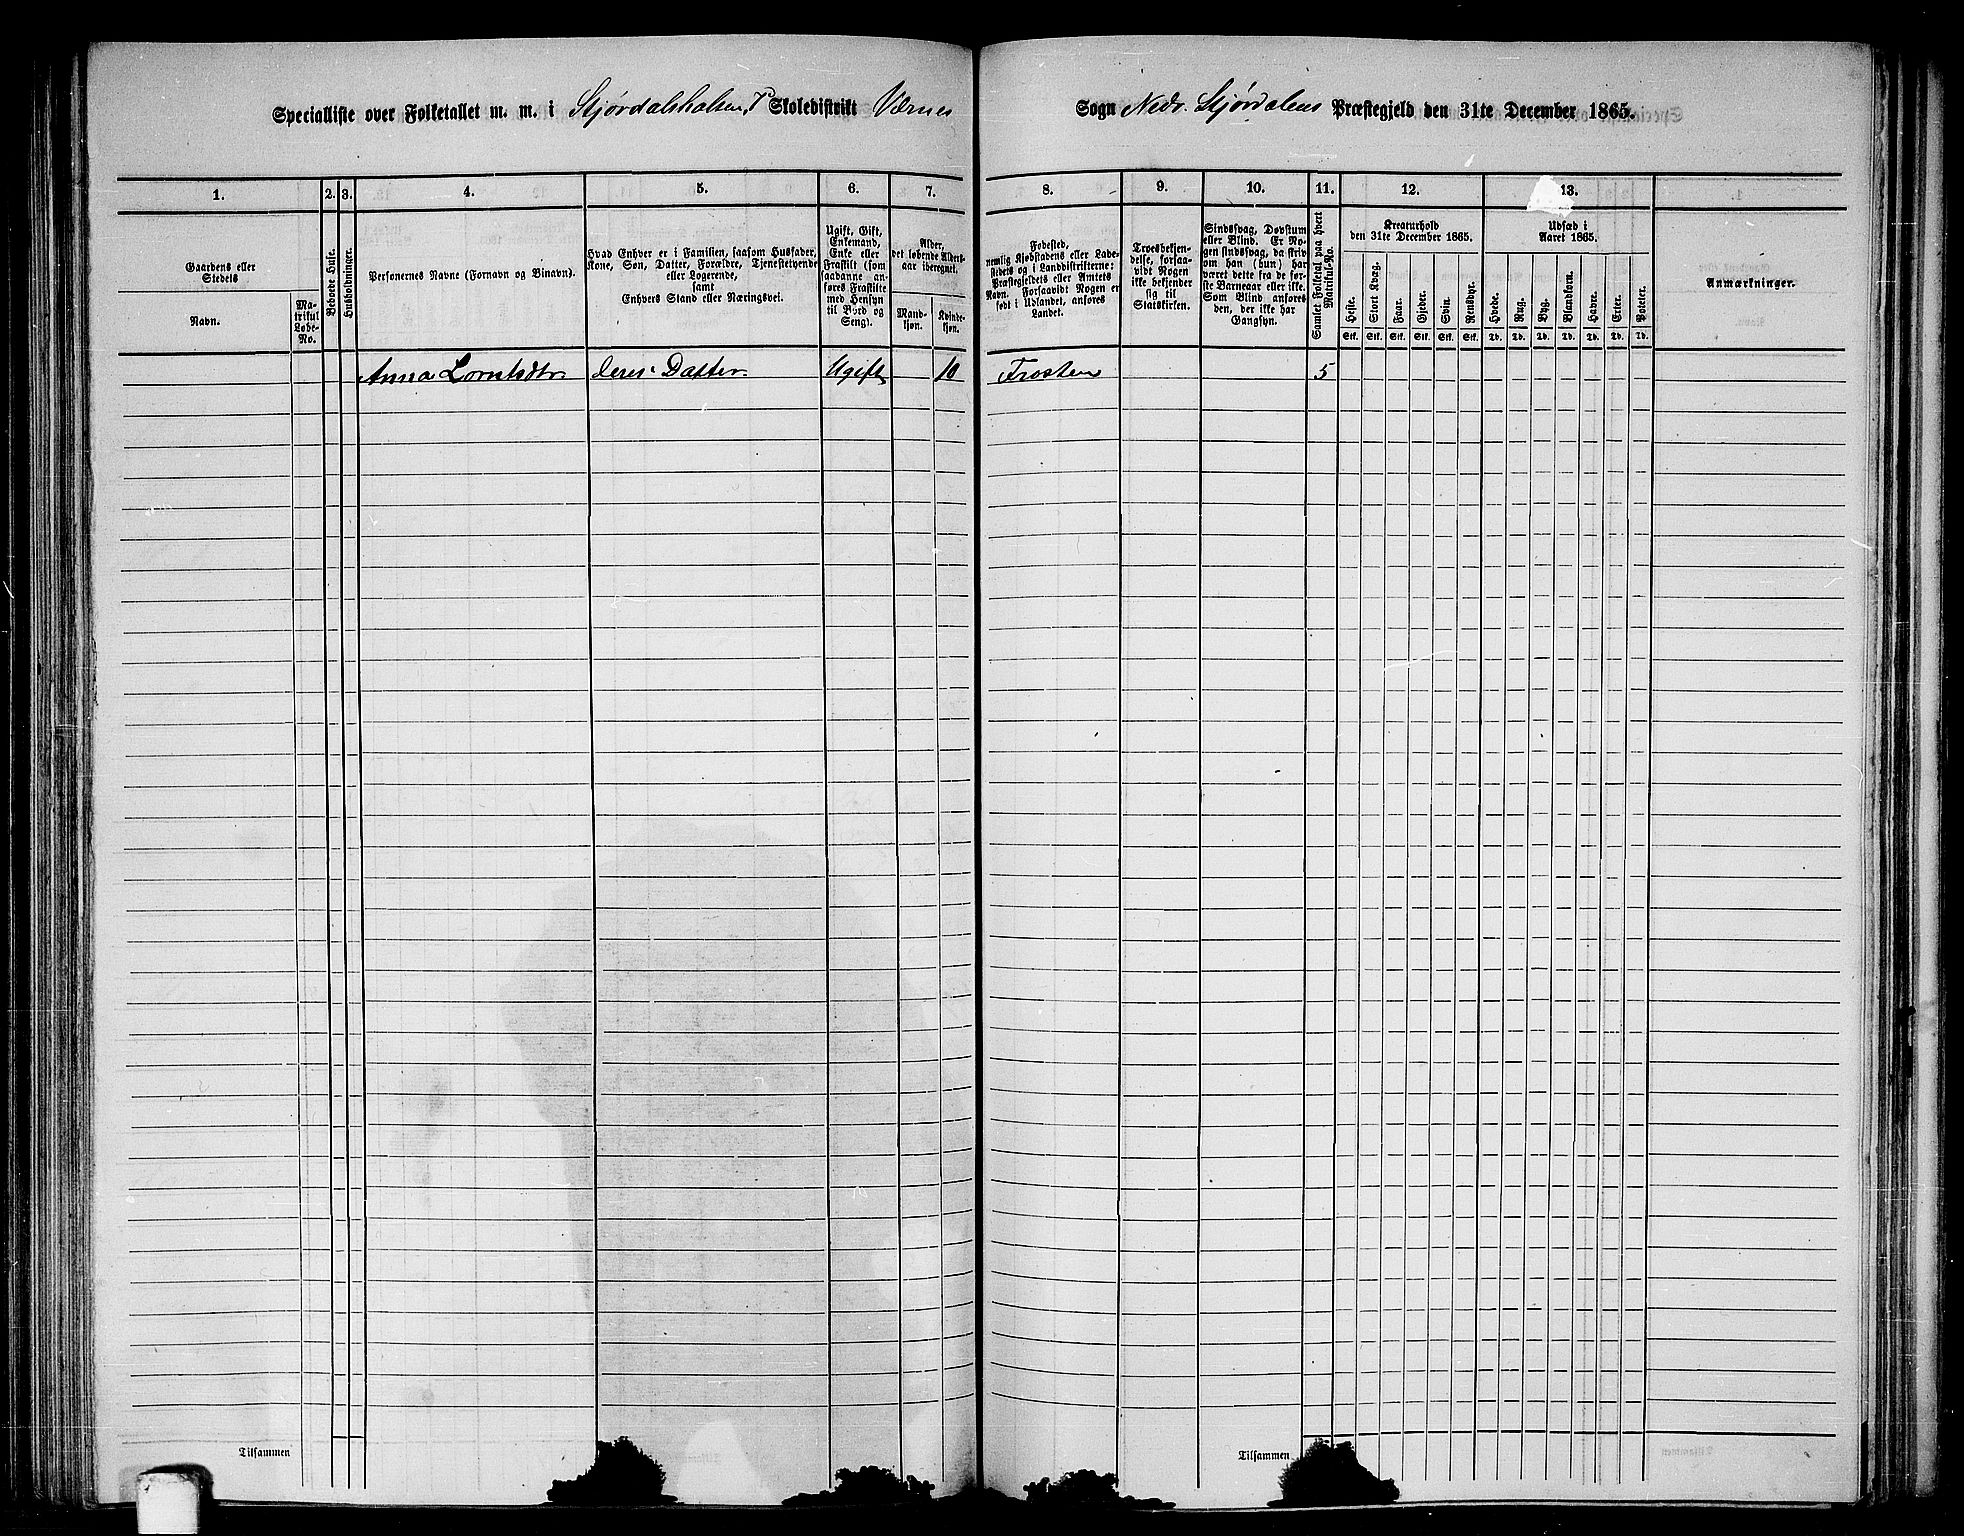 Specialliste over Folketallet m. m. i Stjørdalshalsen Skoledistrikt Værnes Sogn Nedr. Stjørdalens Præstegjeld den 31te December 1865.
1. 2. 3. 4. 5. 6. 7. 8. 9. 10. 11. 12. 13.
Gaardens eller Stedets
Navn.
Matrikul Løbe-No.
Beboede Huse.
Husholdninger.
Personernes Navne (Fornavn og Binavn).
Hvad Enhver er i Familien, saasom Husfader, Kone, Søn, Datter, Forældre, Tjenestetyende
eller Logerende,
samt
Enhvers Stand eller Næringsvei.
Ugift, Gift,
Enkemand,
Enke eller
Fraskilt (som
saadanne an-
føres Fraskilte
med Hensyn
til Bord og
Seng).
Alder,
det løbende Alders-
aar iberegnet.
Mand-
kjøn.
Kvinde-
kjøn.
Fødested,
nemlig Kjøbstadens eller Lade-
stedets og i Landdistrikterne:
Præstegjeldets eller Amtets
Navn. Forsaavidt Nogen er
født i Udlandet, anføres
Landet.
Troesbekjen-
delse, forsaa-
vidt Nogen
ikke bekjender
sig til
Statskirken.
Sindssvag, Døvstum
eller Blind. Er No-
gen sindssvag, da skriv
om han (hun) har
været dette fra de før-
ste Barneaar eller ikke.
Som Blind anføres
den, der ikke har
Gangsyn.
Samlet Folketal paa hvert
Matrikul-No.
Kreaturhold
den 31te December 1865.
Heste.
Stort Kvæg.
Faar.
Gjeder.
Svin.
Rensdyr.
Stk. Stk. Stk. Stk. Stk. Stk.
Udsæd i
Aaret 1865.
Hvede.
Rug.
Byg.
Blandkorn.
Havre.
Erter.
Poteter.
Td. Td. Td. Td. Td. Td. Td.
Anmærkninger.
Anna Lorntsdtr. deres Datter Ugift 10 Frosten 5
Tilsammen Tilsammen